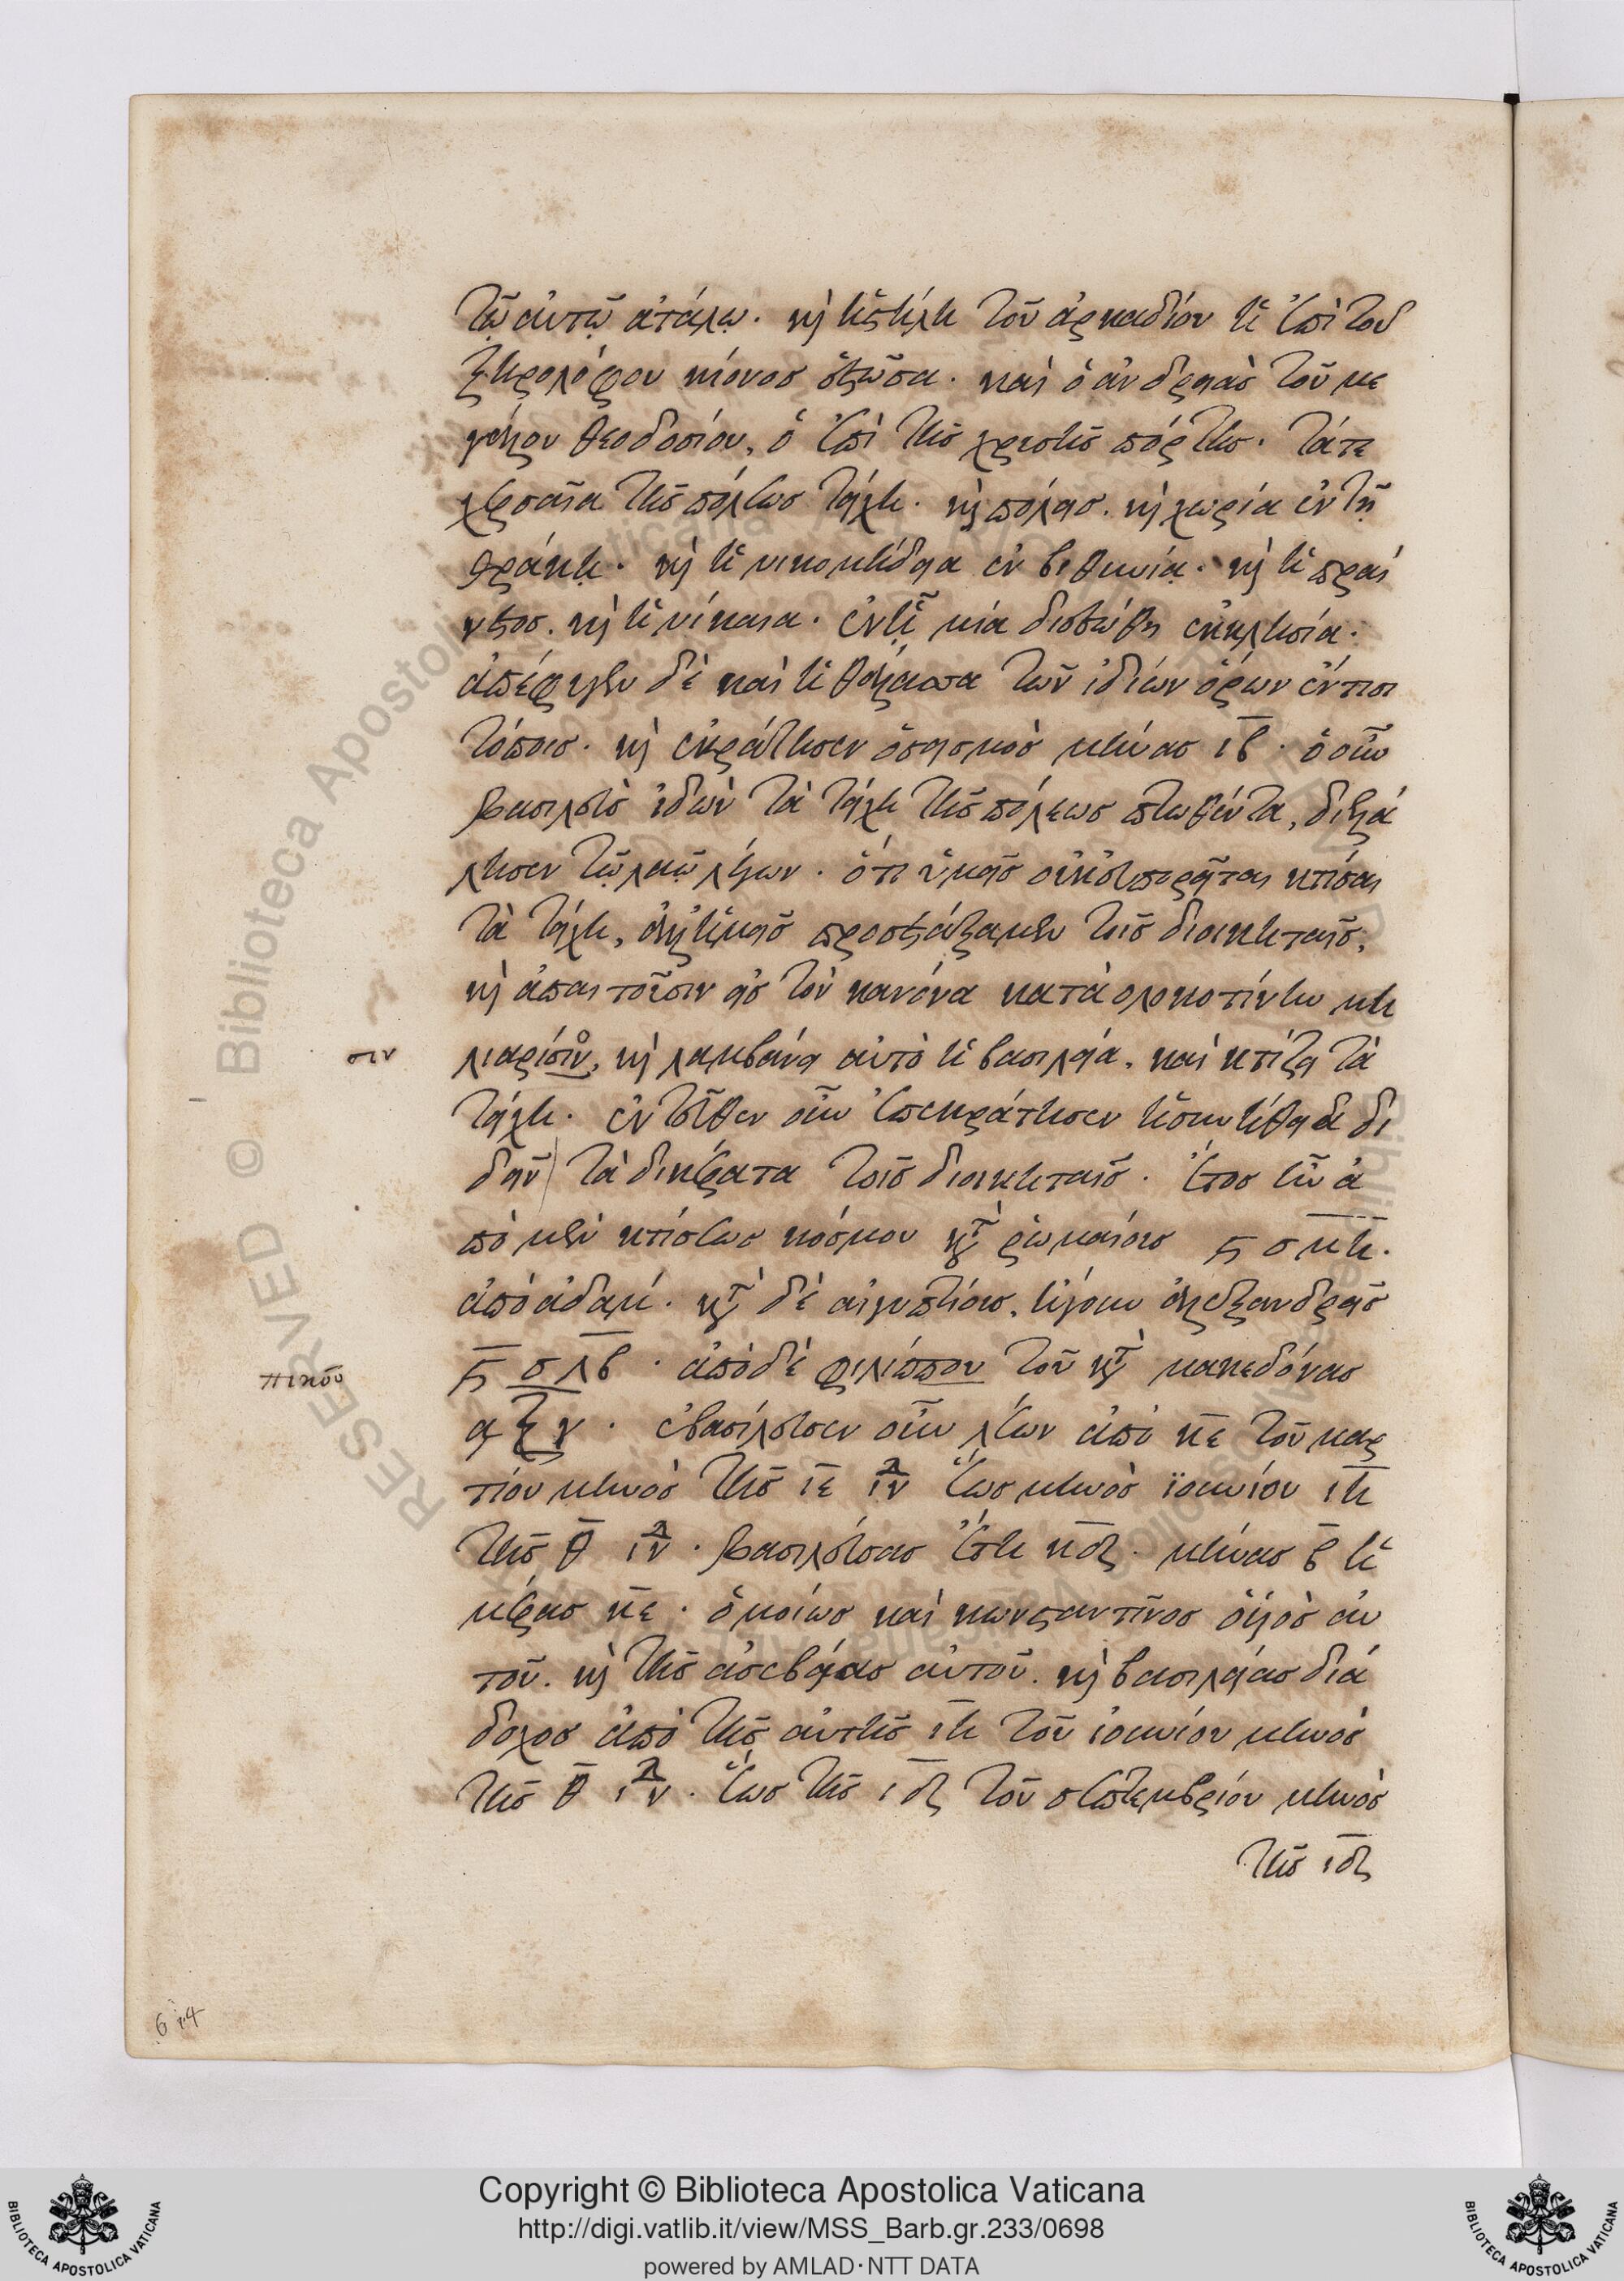 τῷ αὐτῷ ἀτάλῳ. καὶ ἡ στήλη τοῦ ἀρκαδίου ἡ ἐπὶ τοῦ
ξηρολόφου κίονος ἑστῶσα. καὶ ὁ ἀνδριὰς τοῦ με
γάλου θεοδοσίου, ὁ ἐπὶ τῆς χρυσῆς πόρτης. τά τε
χερσαῖα τῆς πόλεως τείχη. καὶ πόλεις. καὶ χωρία ἐν τῇ
θράκῃ. καὶ ἡ νικομήδεια ἐν βιθυνίᾳ. καὶ ἡ πραί
νετος. καὶ ἡ νίκαια. ἐν ᾗ μία διεσώθη ἐκκλησία.
ἀπέφυγεν δὲ καὶ ἡ θάλασσα τῶν ἰδίων ὅρων ἔν τισι
τόποις. καὶ ἐκράτησεν ὁ σεισμὸς μῆνας ιβ. ὁ οὖν
βασιλεὺς ἰδὼν τὰ τείχη τῆς πόλεως πτωθέντα, διελά
λησεν τῷ λαῷ λέγων. ὅτι ὑμεῖς οὐκ εὐπορεῖται κτίσαι
τὰ τείχη, ἀλλ' ἡμεῖς προσετάξαμεν τοῖς διοικηταῖς,
καὶ ἀπαιτοῦσιν εἰς τὸν κανόνα κατὰ ολοκοτίνην μη
λιαρίσιν, καὶ λαμβάνει αὐτὸ ἡ βασιλεία. καὶ κτίζει τὰ
τείχη. ἐντεῦθεν οὖν ἐπεκράτησεν ἡ συνήθεια δι
δεῖν τὰ δικέρατα τοῖς διοικηταῖς. ἔτος ἦν ἀ
πὸ μὲν κτίσεως κόσμου κατὰ ῥωμαίοις ϛ σμη.
ἀπὸ ἀδάμ. κατὰ δὲ αἰγυπτίοις, ἤγουν ἀλεξανδρεῖς
πικοῦ ϛ σλβ. ἀπὸ δὲ φιλίππου τοῦ κατὰ μακεδόνας
αξγ. ἐβασίλευσεν οὖν λέων ἀπὸ κε τοῦ μαρ
τίου μηνὸς τῆς ιε ἰν ἕως μηνὸς ϊουνίου ιη
τῆς θ ἰν. βασιλεύσας ἔτη κδ. μῆνας β ἡ
μέρας κε. ὁμοίως καὶ κωνσταντῖνος ὁ υἱὸς αὐ
τοῦ. καὶ τῆς ἀσεβείας αὐτοῦ. καὶ βασιλείας διά
δοχος ἀπὸ τῆς αὐτῆς ιη τοῦ ἰουνίου μηνὸς
τῆς θ ἰν. ἕως τῆς ιδ τοῦ σεπτεμβρίου μηνὸς
τῆς ιδ
σιν
Copyright © Biblioteca Apostolica Vaticana
http://digi.vatlib.it/view/MSS_Barb.gr.233/0698
powered by AMLAD·NTT DATA